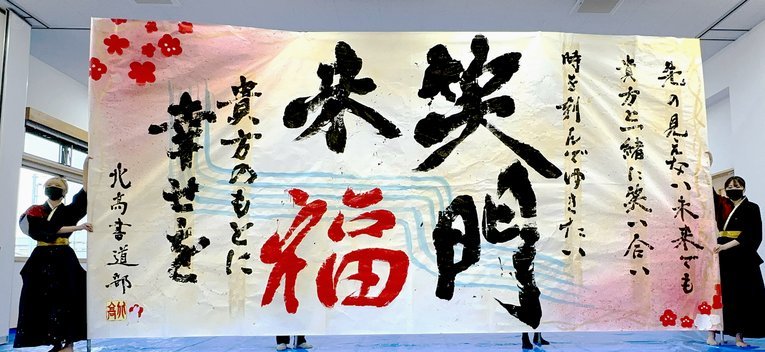 先の見えない未来でも
貴方と一緒に笑い合い
時を刻んでゆきたい
笑門
来福
貴方のもとに
幸せを
北高書道部